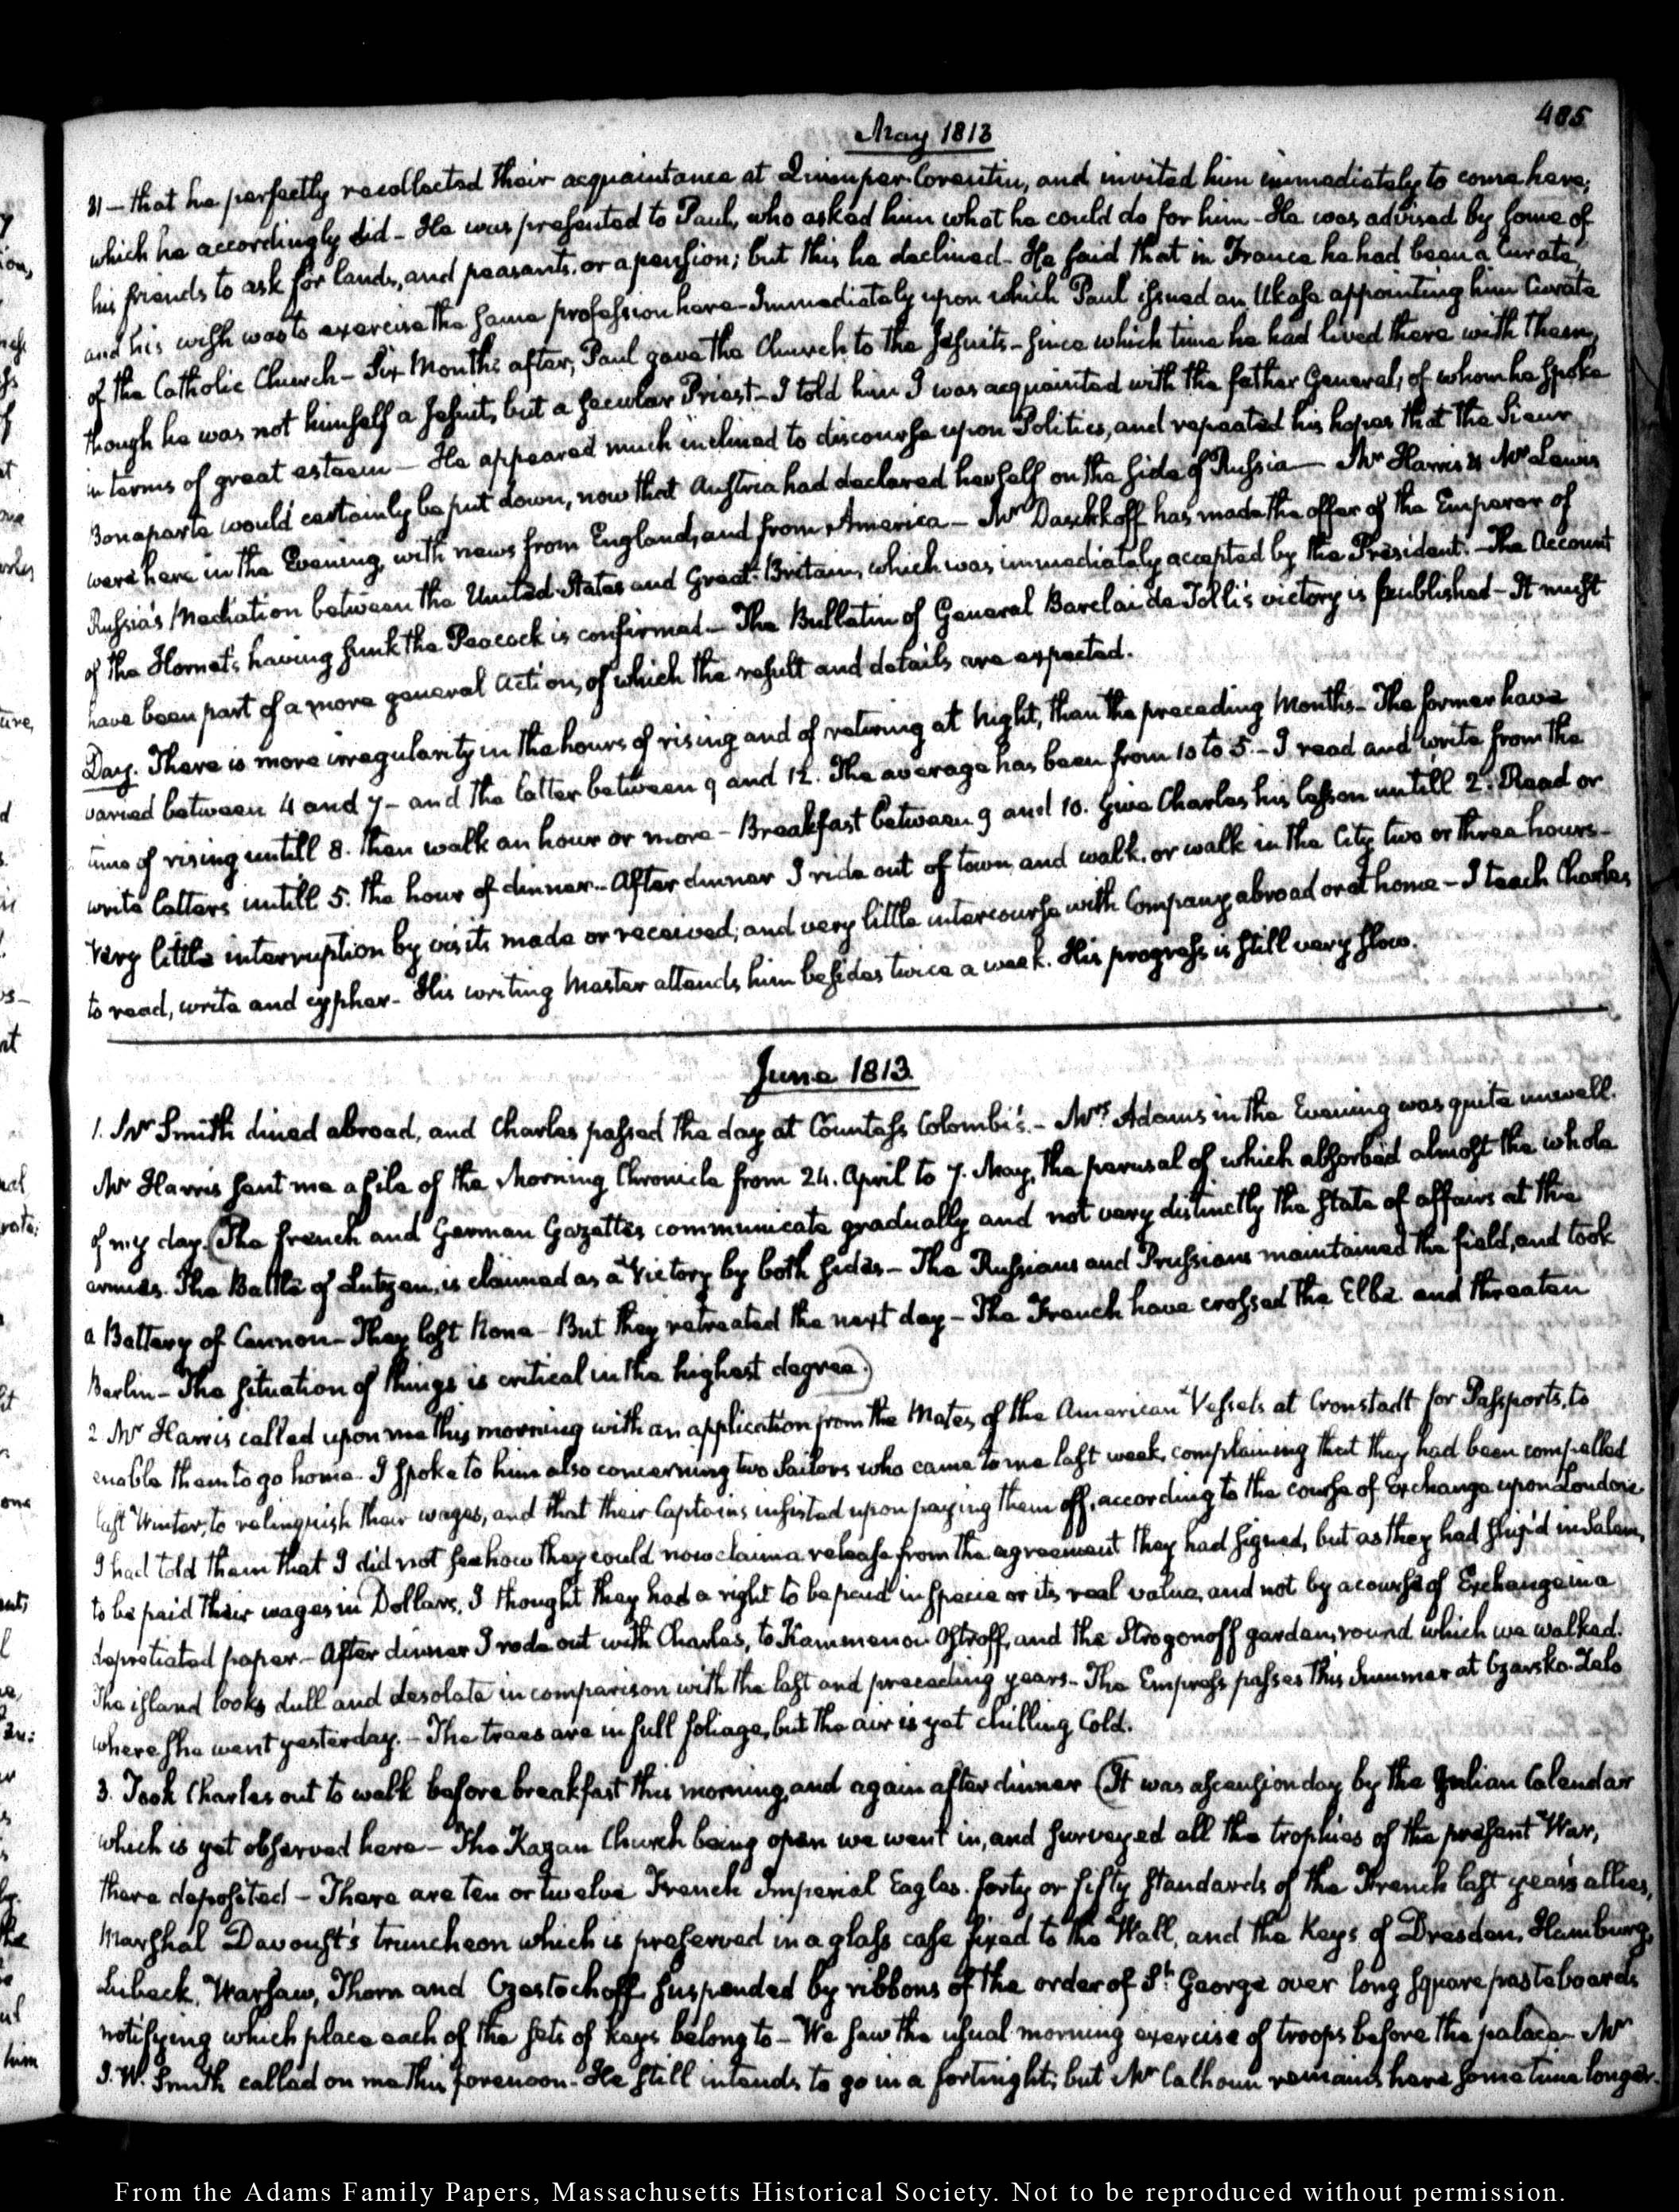 485
May 1813
31 — that he perfectly recollected their acquaintance at Quimper-Corentin, and invited him immediately to come here;
which he accordingly did — He was presented to Paul, who asked him what he could do for him — He was advised by some of
his friends to ask for lands, and peasants, or a pension; but this he declined — He said that in France he had been a Curate,
and his wish was to exercise the same profession here — Immediately upon which Paul issued an Ukase appointing him Curate
of the Catholic Church — Six Months after, Paul gave the Church to the Jesuits — since which time he had lived there with them,
though he was not himself a Jesuit, but a secular Priest — I told him I was acquainted with the father General, of whom he spoke
in terms of great esteem — He appeared much inclined to discourse upon Politics, and repeated his hopes that the Sieur
Bonaparte would certainly be put down, now that Austria had declared herself on the side of Russia — Mr Harris & Mr Lewis
were here in the Evening, with news from England, and from America — Mr Daschkoff has made the offer of the Emperor of
Russia's Mediation between the United States and Great-Britain, which was immediately accepted by the President. — The Account
of the Hornet's having sunk the Peacock is confirmed — The Bulletin of General Barclai de Tolli's victory is published — It must
have been part of a more general Action, of which the result and details are expected.
Day. There is more irregularity in the hours of rising and of retiring at night, than the preceding Months — The former have
varied between 4 and 7 — and the latter between 9 and 12. The average has been from 10 to 5. — I read and write from the
time of rising untill 8. then walk an hour or more — Breakfast between 9 and 10. Give Charles his lesson untill 2. Read or
write letters untill 5. the hour of dinner — After dinner I ride out of town, and walk, or walk in the City two or three hours —
Very little interruption by visits made or received; and very little intercourse with Company abroad or at home — I teach Charles
to read, write and cypher — His writing Master attends him besides twice a week. His progress is still very slow.
June 1813.
1. Mr Smith dined abroad, and Charles passed the day at Countess Colombi's. — Mrs Adams in the Evening was quite unwell.
Mr Harris sent me a file of the Morning Chronicle from 24. April to 7. May, the perusal of which absorbed almost the whole
of my day. (The French and German Gazettes communicate gradually and not very distinctly the state of affairs at the
armies. The Battle of Lutzen, is claimed as a Victory by both sides — The Russians and Prussians maintained the field, and took
a Battery of Cannon — They lost None — But they retreated the next day — The French have crossed the Elbe and threaten
Berlin — The situation of things is critical in the highest degree.)
2. Mr Harris called upon me this morning with an application from the Mates of the American Vessels at Cronstadt for Passports, to
enable them to go home. I spoke to him also concerning two Sailors who came to me last week, complaining that they had been compelled
last Winter, to relinquish their wages, and that their Captains insisted upon paying them off, according to the course of Exchange upon London.
I had told them that I did not see how they could now claim a release from the agreement they had signed, but as they had ship'd in Salem,
to be paid their wages in Dollars, I thought they had a right to be paid in specie or its real value, and not by a course of Exchange in a
depretiated paper. — After dinner I rode out with Charles, to Kammenoi Ostroff, and the Strogonoff garden, round which we walked.
The island looks dull and desolate in comparison with the last and preceding years — The Empress passes this Summer at Czarsko-Zelo
where she went yesterday. — The trees are in full foliage, but the air is yet chilling Cold.
3. Took Charles out to walk before breakfast this morning, and again after dinner (It was ascension day by the Julian Calendar
which is yet observed here — The Kazan Church being open we went in, and surveyed all the trophies of the present War,
there deposited — There are ten or twelve French Imperial Eagles. forty or fifty standards of the French last year's allies,
Marshal Davoust's truncheon which is preserved in a glass case fixed to the Wall, and the Keys of Dresden, Hamburg,
Lubeck, Warsaw, Thorn and Czestochoff suspended by ribbons of the order of St George over long square pasteboards
notifying which place each of the sets of keys belong to — We saw the usual morning exercise of troops before the palace) — Mr
J. W. Smith called on me this forenoon — He still intends to go in a fortnight; but Mr Calhoun remains here some time longer.
From the Adams Family Papers, Massachusetts Historical Society. Not to be reproduced without permission.